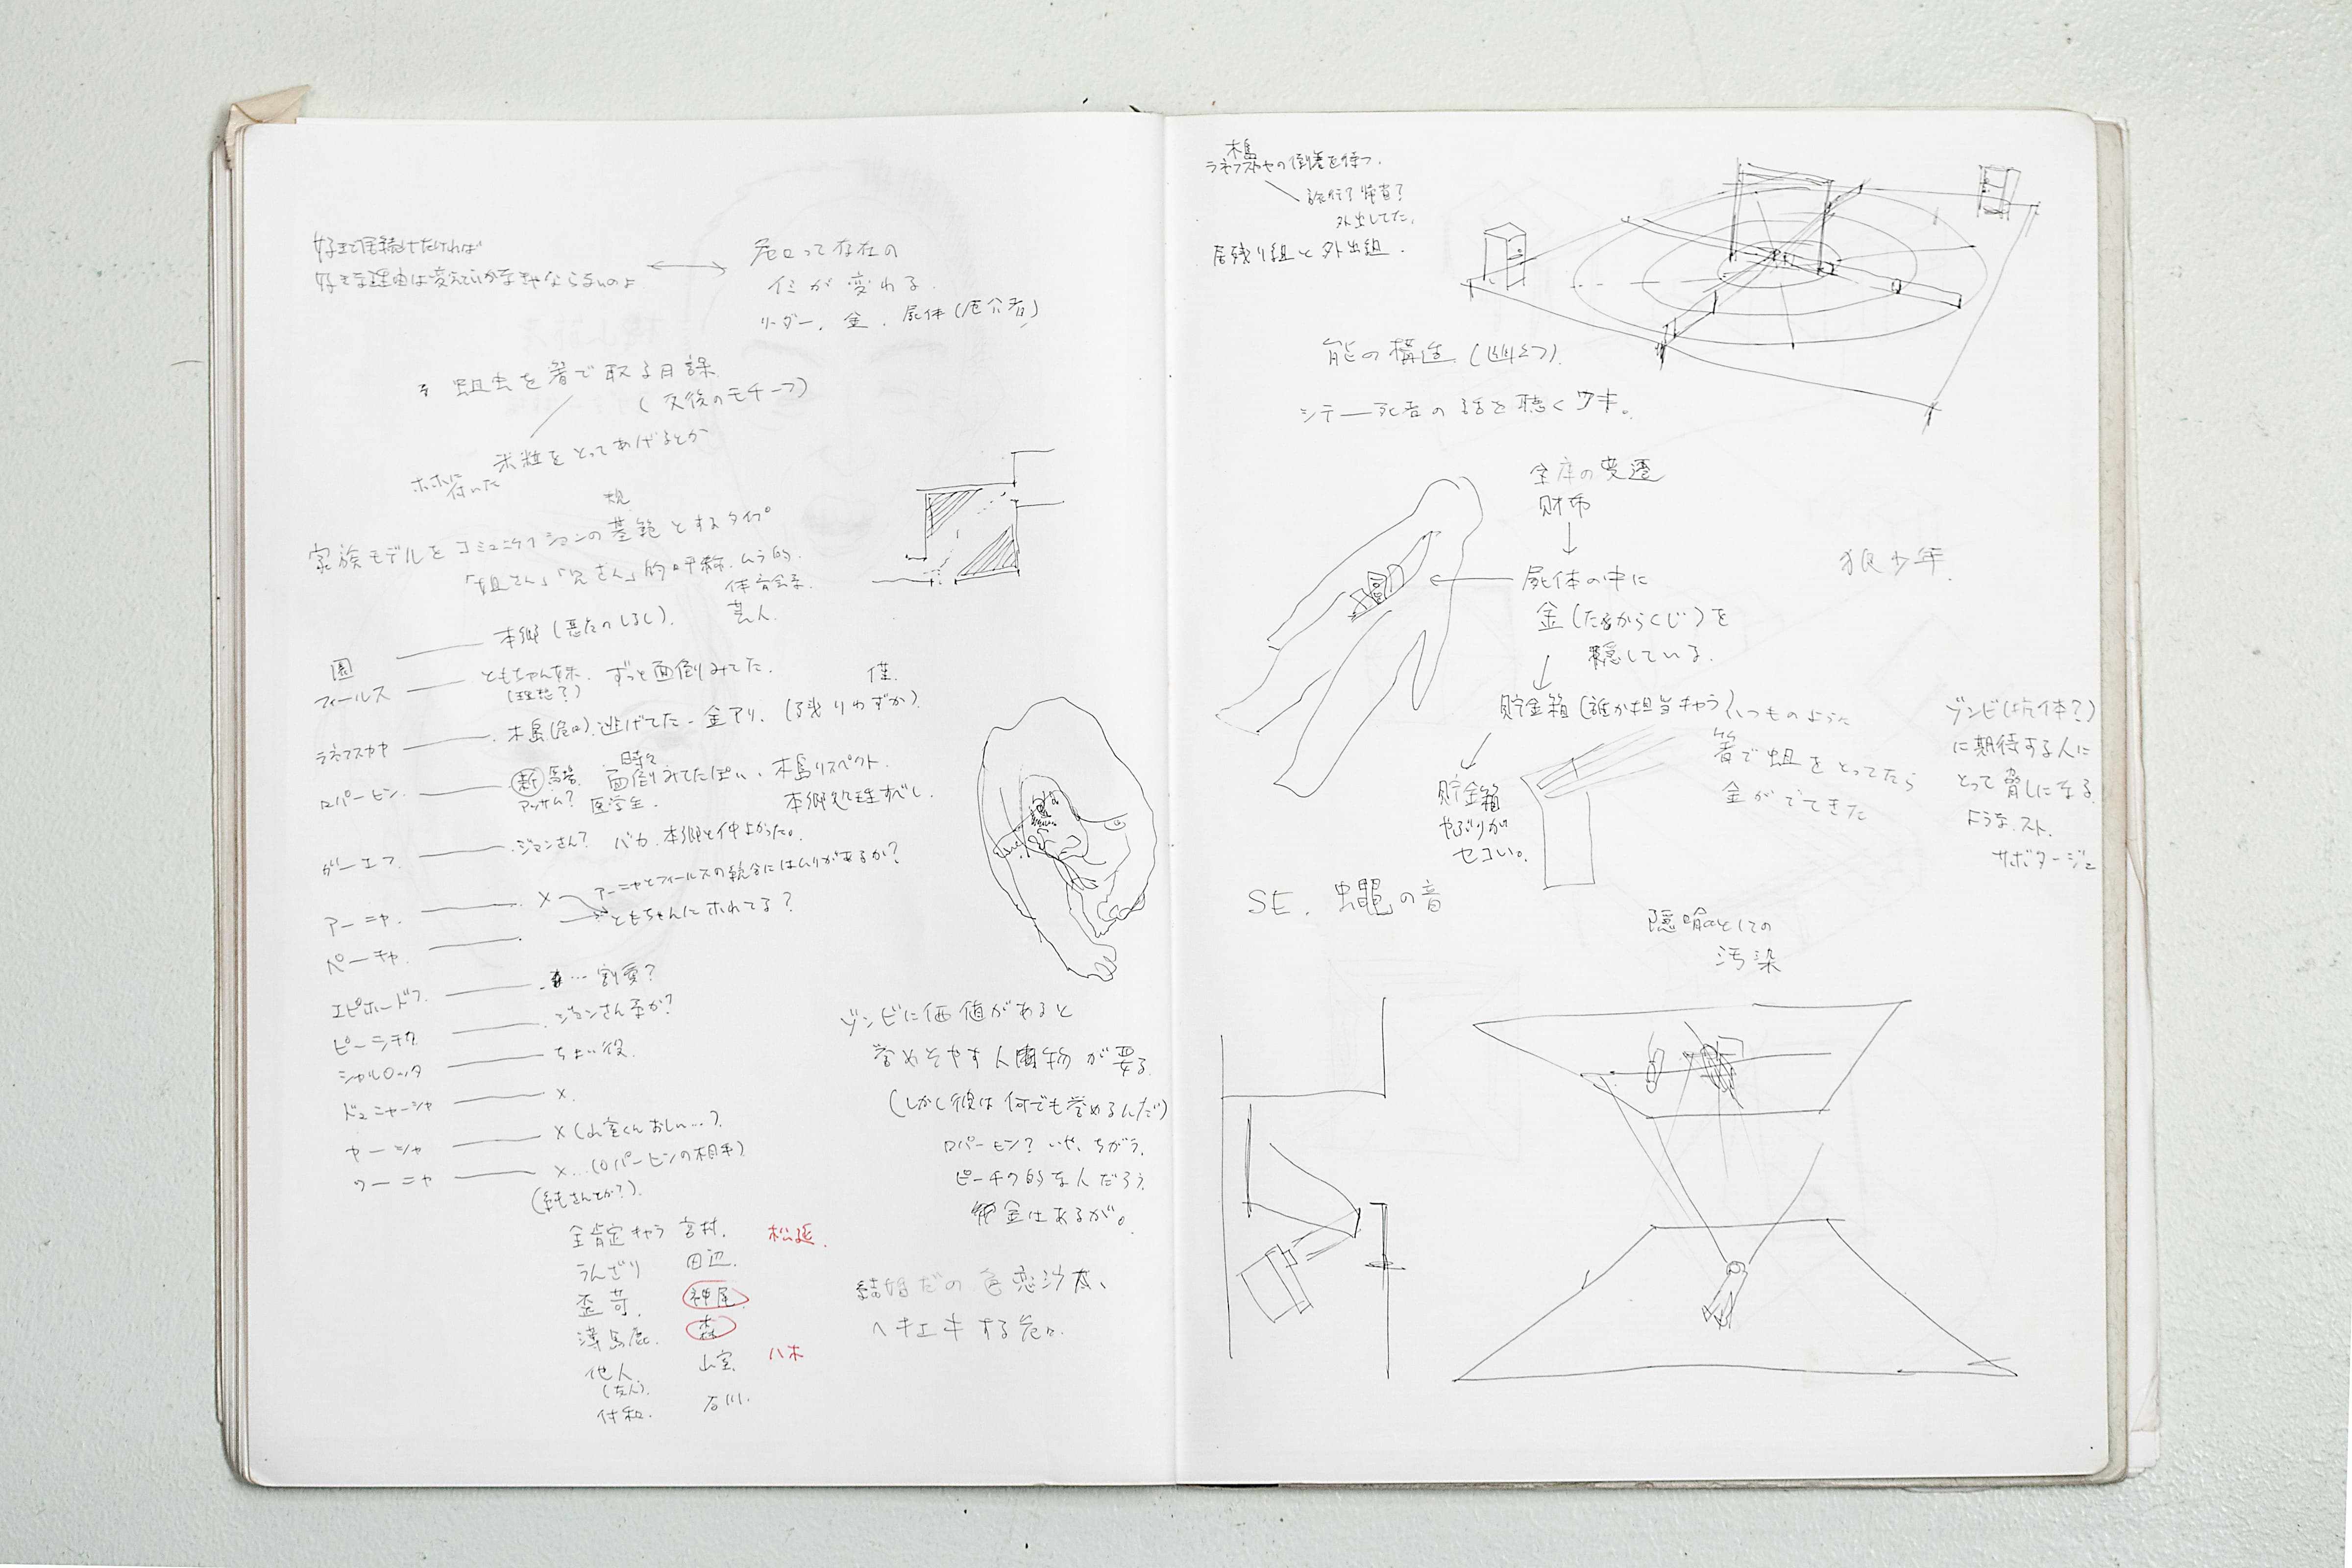 好きで居続けたければ
好きな理由は変えていかなきゃならないのよ
危口って存在の
イミが変わる
リーダー、金、屍体(厄介者)
蛆虫を箸で取る日課
(反後のモチーフ)
ホホに付いた
米粒をとってあげるとか
規
家族モデルをコミュニケーションの基範とするタイプ
「姐さん」「兄さん」的呼称、ムラ的
体育会系
芸人
園 本郷(悪女のしるし)
フィールス ともちゃん妹、ずっと面倒みてた。
(理想?)
僅
ラネフスカヤ 木島(危口)逃げてた - 金アリ、(残りわずか)
時々
ロパーヒン 新 面倒みてたぽい、木島リスペクト
アッサム? 医学生 本郷処理すべし。
ガーエフ ジョンさん? バカ 本郷と仲よかった。
アーニャ × アーニャとフィールスの統合にはムリがあるか?
→ともちゃんにホれてる?
ペーチャ
エピホードフ …割愛?
ピーシチク ジョンさん系か?
シャルロッタ ちょい役
ドュニャーシャ ×
ヤーシャ ×(山室くんおしい…?)
ワーニャ ×…(ロパーヒンの相手)
(純さんとか?)
全肯定キャラ 宮村 松延
うんざり 田辺
歪苛 神尾
薄馬鹿 森
他人 山室 八木
(友人)
付和 石川
ゾンビに価値があると
誉めそやす人物が要る
(しかし彼は何でも誉めるんだ)
ロパーヒン? いや、ちがう。
ピーチク的な人だろう
借金はあるが。
結婚だの色恋沙汰、
ヘキエキする危口
木島
ラネフスカヤの到着を待つ
旅行? 検査?
外出してた。
居残り組と外出組
能の構造(幽シテ)
シテ―死者の話を聴くワキ。
金庫の変遷
財布
↓
屍体の中に
金(たからくじ)を
隠している。
↓
貯金箱(誰か担当キャラ)
貯金箱
やぶりが
セコい。
いつものように
箸で蛆をとってたら
金がでてきた
狼少年
ゾンビ(抗体?)
に期待する人に
とって脅しになる
ような、スト、
サボタージュ
SE. 蠅の音
隠喩としての
汚染